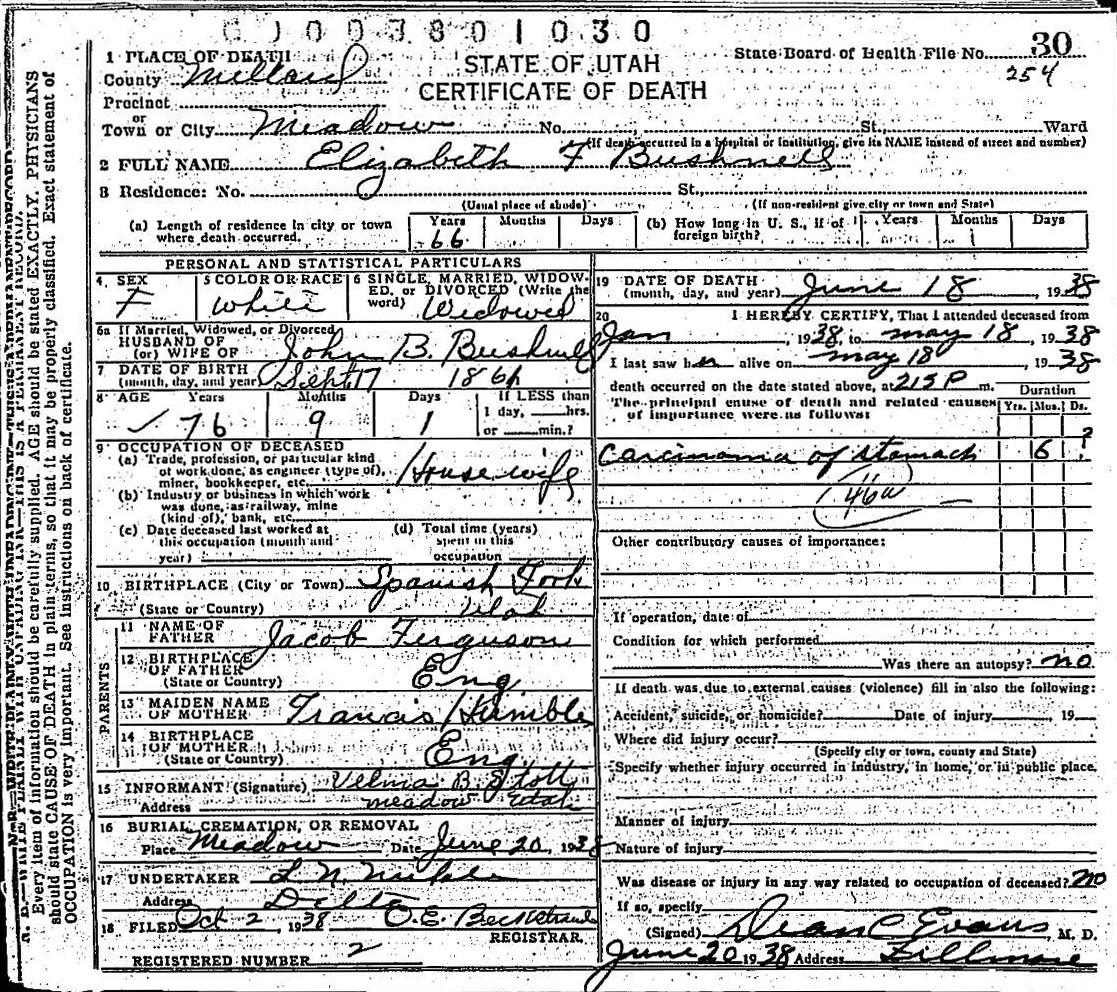 G J 0 0 3 8 0 1 0 3 0
1 PLACE OF DEATH
County Millard
STATE OF UTAH
CERTIFICATE OF DEATH
State Board of Health File No. 30
254
Precinct
or
Town or City Meadow No. St., Ward
(If death occurred in a hospital or institution, give its NAME instead of street and number)
2 FULL NAME Elizabeth F Bushnell
3 Residence: No. St.,
(Usual place of abode) (If non-resident give city or town and State)
(a) Length of residence in city or town where death occurred. Years 66 Months Days
(b) How long in U. S., if of foreign birth? Years Months Days
PERSONAL AND STATISTICAL PARTICULARS
4 SEX F
5 COLOR OR RACE White
6 SINGLE, MARRIED, WIDOWED, OR DIVORCED (Write the word) Widowed
6a If Married, Widowed, or Divorced
HUSBAND OF
(or) WIFE OF John B. Bushnell
7 DATE OF BIRTH
(month, day, and year) Sept 17 1861
8 AGE Years 76 Months 9 Days 1 If LESS than 1 day, hrs. or min.?
9 OCCUPATION OF DECEASED
(a) Trade, profession, or particular kind
of work done, as engineer (type of),
miner, bookkeeper, etc. Housewife
(b) Industry or business in which work
was done, as railway, mine
(kind of), bank, etc.
(c) Date deceased last worked at
this occupation (month and
year)
(d) Total time (years)
spent in this
occupation
10 BIRTHPLACE (City or Town) Spanish Fork
(State or Country) Utah
PARENTS
11 NAME OF
FATHER Jacob Ferguson
12 BIRTHPLACE
OF FATHER
(State or Country) Eng.
13 MAIDEN NAME
OF MOTHER Francis Humble
14 BIRTHPLACE
OF MOTHER
(State or Country) Eng
15 INFORMANT (Signature) Velma B. Stott
Address Meadow Utah
16 BURIAL, CREMATION, OR REMOVAL
Place Meadow Date June 20, 1938
17 UNDERTAKER
Address Delta
18 FILED Oct 2, 1938 O. E. Beckstrand
REGISTRAR.
REGISTERED NUMBER 2
19 DATE OF DEATH
(month, day, and year) June 18, 1938
20 I HEREBY CERTIFY, That I attended deceased from
Jan, 1938, to May 18, 1938
I last saw her alive on May 18, 1938
death occurred on the date stated above, at 215 P m.
The principal cause of death and related causes
of importance were as follows:
Duration
Yrs. Mos. Ds.
Carcinoma of stomach 6 ?
46a
Other contributory causes of importance:
If operation, date of
Condition for which performed
Was there an autopsy? no
If death was due to external causes (violence) fill in also the following:
Accident, suicide, or homicide? Date of injury, 19
Where did injury occur?
(Specify city or town, county and State)
Specify whether injury occurred in industry, in home, or in public place.
Manner of injury
Nature of injury
Was disease or injury in any way related to occupation of deceased? no
If so, specify
(Signed) Dean C Evans, M. D.
June 20 1938 Address Fillmore
Every item of information should be carefully supplied. AGE should be stated EXACTLY. PHYSICIANS
should state CAUSE OF DEATH in plain terms, so that it may be properly classified. Exact statement of
OCCUPATION is very important. See instructions on back of certificate.